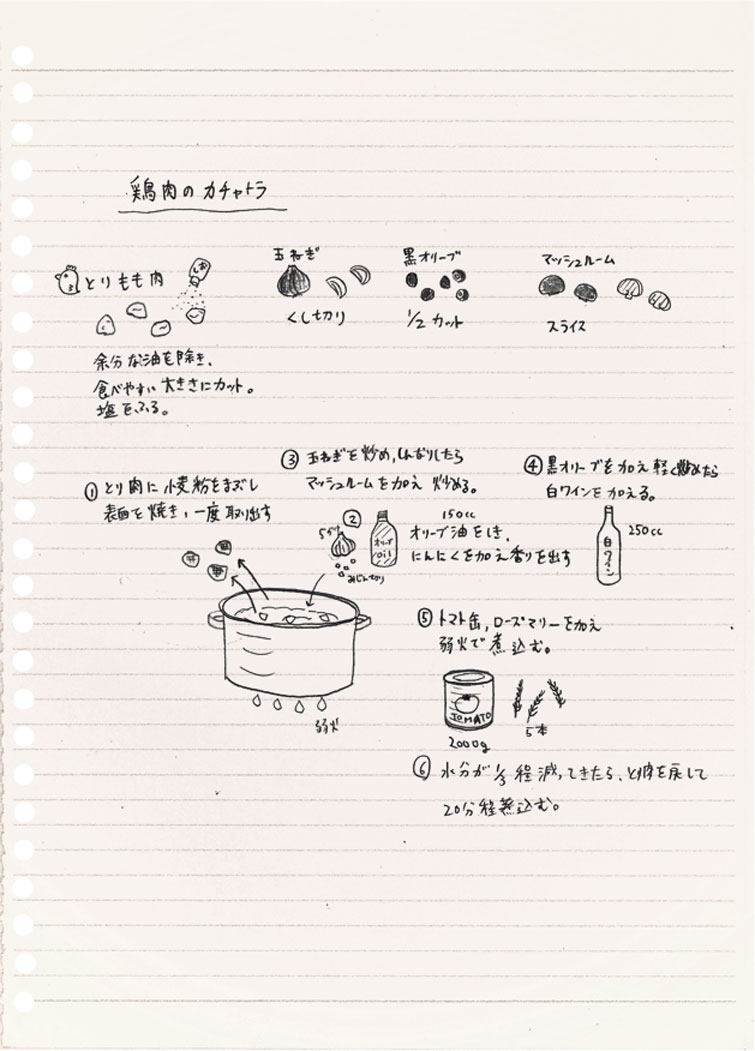 鶏肉のカチャトラ
とりもも肉
しお
余分な油を除き、
食べやすい大きさにカット。
塩をふる。
玉ねぎ
くし切り
黒オリーブ
1/2カット
マッシュルーム
スライス
① とり肉に小麦粉をまぶし
表面を焼き、一度取り出す
② 150cc
オリーブ油をしき、
にんにくを加え香りを出す
5かけ
みじん切り
オリーブ
oil
③ 玉ねぎを炒め、しんなりしたら
マッシュルームを加え 炒める。
④ 黒オリーブを加え 軽く炒めたら
白ワインを加える。
250cc
白ワイン
弱火
⑤ トマト缶、ローズマリーを加え
弱火で煮込む。
TOMATO
2000g
5本
⑥ 水分が1/3程減ってきたら、とり肉を戻して
20分程煮込む。